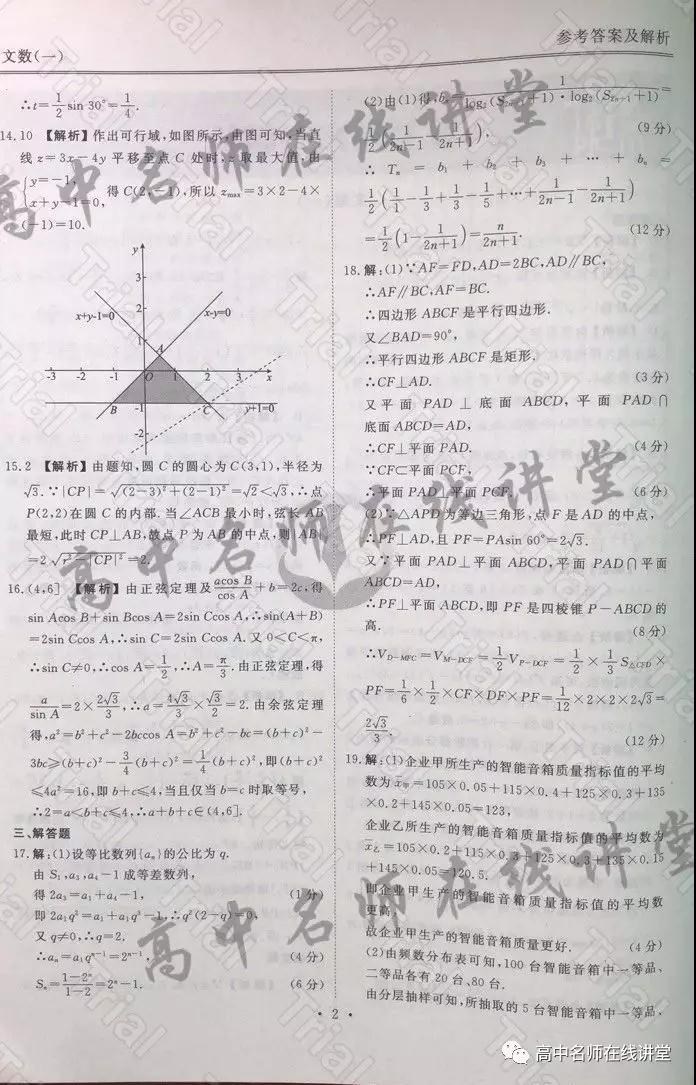 文数(一)
参考答案及解析
∴t=1/2 sin 30°=1/4.
14.10 【解析】作出可行域,如图所示,由图可知,当直
线 z=3x-4y 平移至点 C 处时,z 取最大值,由
{y=-1, x+y-1=0, 得 C(2,-1),所以 z_max=3×2-4×
(-1)=10.
y
3
2
1
x+y-1=0
x-y=0
A
-3 -2 -1 O 1 2 3 x
B -1 C y+1=0
-2
15.2 【解析】由题知,圆 C 的圆心为 C(3,1),半径为
√3.∵|CP|=√((2-3)²+(2-1)²)=√2<√3,∴点
P(2,2)在圆 C 的内部.当∠ACB 最小时,弦长 AB
最短,此时 CP⊥AB,故点 P 为 AB 的中点,则|AB|
=2√(r²-|CP|²)=2.
16.(4,6] 【解析】由正弦定理及 acos B/cos A+b=2c,得
sin Acos B+sin Bcos A=2sin Ccos A,∴sin(A+B)
=2sin Ccos A,∴sin C=2sin Ccos A.又 0<C<π,
∴sin C≠0,∴cos A=1/2,∴A=π/3.由正弦定理,得
a/sin A=2×2√3/3,∴a=4√3/3×√3/2=2.由余弦定理
得,a²=b²+c²-2bccos A=b²+c²-bc=(b+c)²-
3bc≥(b+c)²-3/4(b+c)²=1/4(b+c)²,即(b+c)²
≤4a²=16,即 b+c≤4,当且仅当 b=c 时取等号,
∴2=a<b+c≤4,∴a+b+c∈(4,6].
三、解答题
17.解:(1)设等比数列{aₙ}的公比为 q.
由 S₁,a₃,a₄-1 成等差数列,
得 2a₃=a₁+a₄-1, (1分)
即 2a₁q²=a₁+a₁q³-1,∴q²(2-q)=0,
又 q≠0,∴q=2,
∴aₙ=a₁qⁿ⁻¹=2ⁿ⁻¹, (4分)
Sₙ=(1-2ⁿ)/(1-2)=2ⁿ-1. (6分)
(2)由(1)得,bₙ=1/(log₂(S₂ₙ₊₁+1)·log₂(S₂ₙ₋₁+1))=
1/2(1/(2n-1)-1/(2n+1)), (9分)
∴ Tₙ = b₁ + b₂ + b₃ + ⋯ + bₙ =
1/2(1-1/3+1/3-1/5+⋯+1/(2n-1)-1/(2n+1))
=1/2(1-1/(2n+1))=n/(2n+1). (12分)
18.解:(1)∵AF=FD,AD=2BC,AD∥BC,
∴AF∥BC,AF=BC.
∴四边形 ABCF 是平行四边形.
又∠BAD=90°,
∴平行四边形 ABCF 是矩形,
∴CF⊥AD. (3分)
又平面 PAD⊥底面 ABCD,平面 PAD∩
底面 ABCD=AD,
∴CF⊥平面 PAD. (4分)
∵CF⊂平面 PCF,
∴平面 PAD⊥平面 PCF. (6分)
(2)∵△APD 为等边三角形,点 F 是 AD 的中点,
∴PF⊥AD,且 PF=PAsin 60°=2√3.
又∵平面 PAD⊥平面 ABCD,平面 PAD∩平面
ABCD=AD,
∴PF⊥平面 ABCD,即 PF 是四棱锥 P-ABCD 的
高. (8分)
∴V_D-MFC=V_M-DCF=1/2V_P-DCF=1/2×1/3S_△CFD×
PF=1/6×1/2×CF×DF×PF=1/12×2×2×2√3=
2√3/3. (12分)
19.解:(1)企业甲所生产的智能音箱质量指标值的平均
数为 x̄甲=105×0.05+115×0.4+125×0.3+135
×0.2+145×0.05=123,
企业乙所生产的智能音箱质量指标值的平均数为
x̄乙=105×0.2+115×0.3+125×0.3+135×0.15
+145×0.05=120.5,
即企业甲生产的智能音箱质量指标值的平均数
更高,
故企业甲生产的智能音箱质量更好. (4分)
(2)由频数分布表可知,100 台智能音箱中一等品、
二等品各有 20 台、80 台.
由分层抽样可知,所抽取的 5 台智能音箱中一等品、
· 2 ·
高中名师在线讲堂
高中名师在线讲堂
高中名师在线讲堂
Trial
高中名师在线讲堂